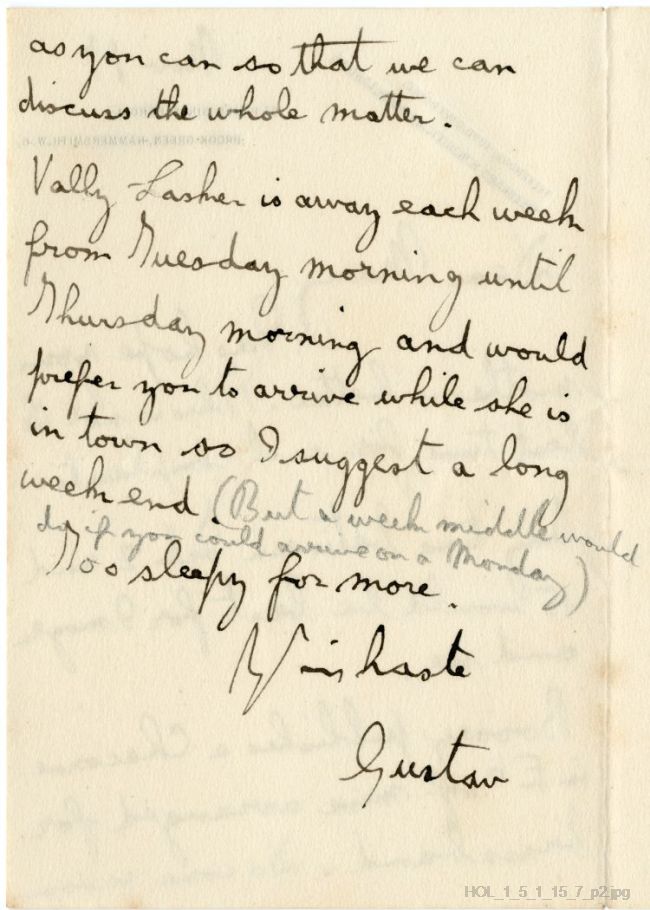 as you can so that we can
discuss the whole matter.
Vally Lasker is away each week
from Tuesday morning until
Thursday morning and would
prefer you to arrive while she is
in town so I suggest a long
week end (But a week middle would
do if you could arrive on a Monday)
Too sleepy for more.
Y in haste
Gustav
HOL_1_5_1_15_7_p2.jpg